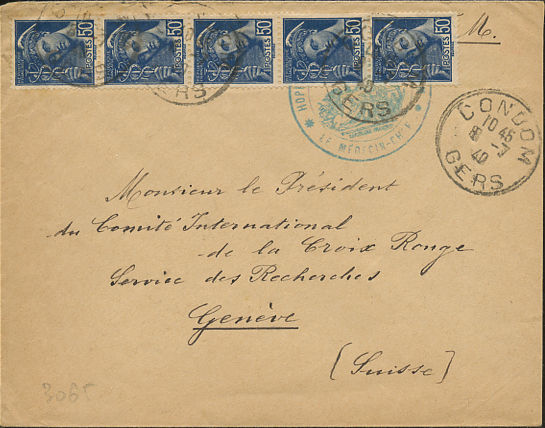 50 50 50 50 50
POSTES POSTES POSTES POSTES POSTES
M.
GERS
GERS
HOP
LE MÉDECIN-CHEF
CONDOM
10 45
8 -7
40
GERS
Monsieur le Président
du Comité International
de la Croix Rouge
Service des Recherches
Genève
(Suisse)
3065